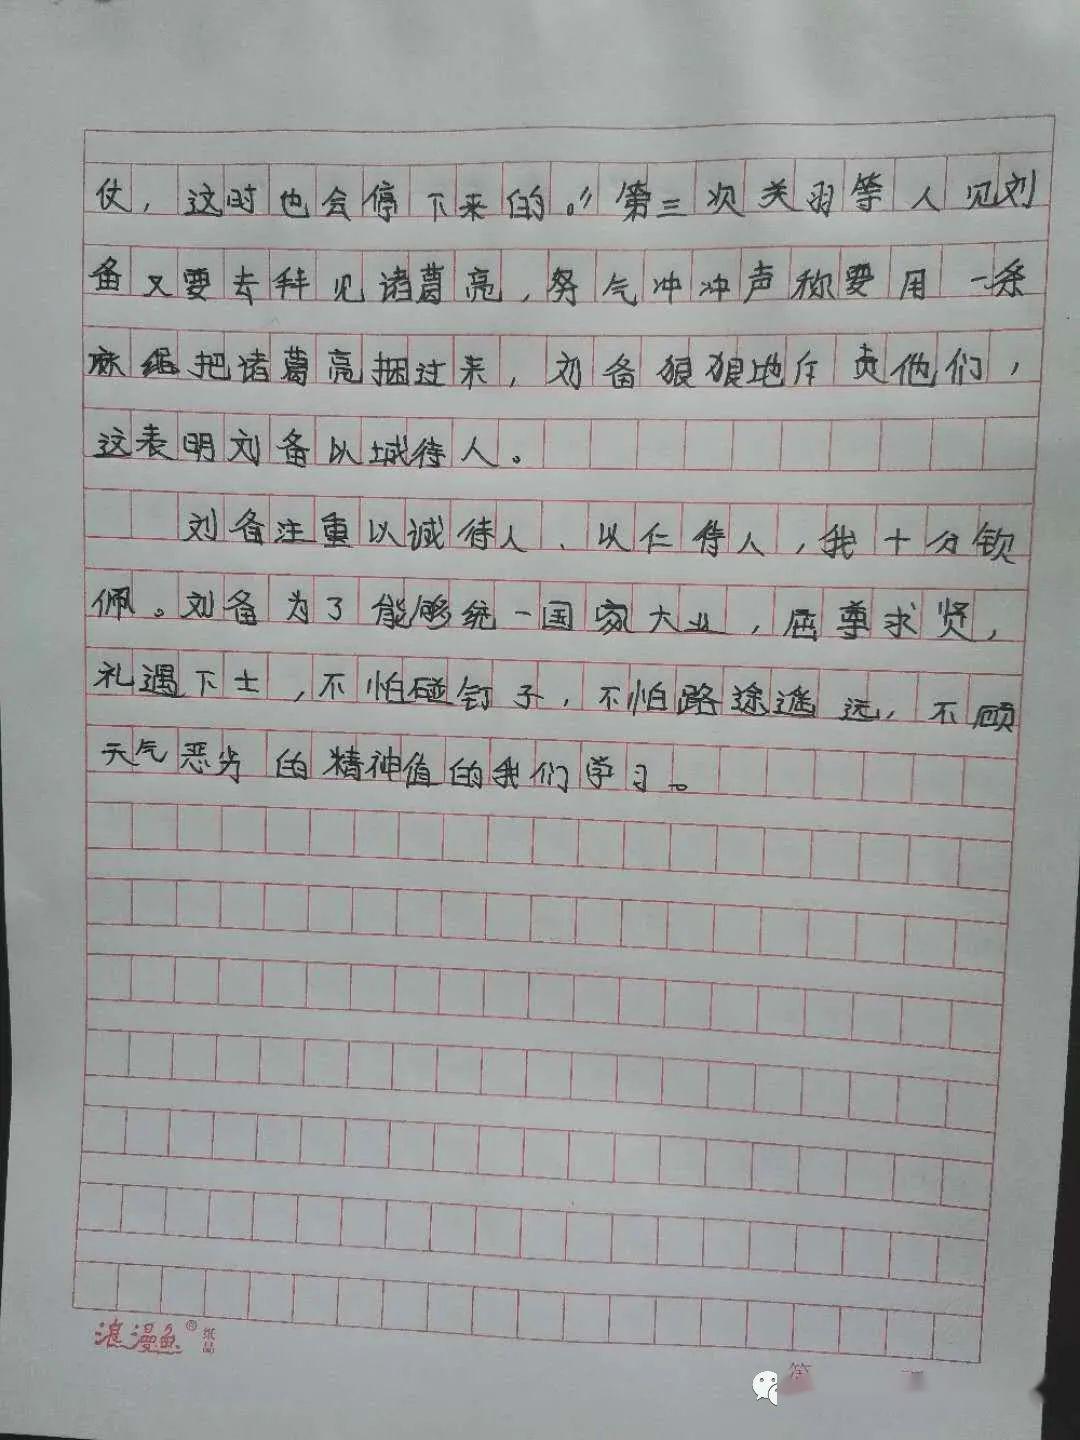 仗，这时也会停下来的。”第三次关羽等人见刘
备又要去拜见诸葛亮，努气冲冲声称要用一条
麻绳把诸葛亮捆过来，刘备狠狠地斥责他们，
这表明刘备以城待人。
刘备注重以诚待人、以仁待人，我十分钦
佩。刘备为了能够统一国家大业，屈尊求贤，
礼遇下士，不怕碰钉子，不怕路途遥远，不顾
天气恶劣的精神值的我们学习。
浪漫鱼®纸品